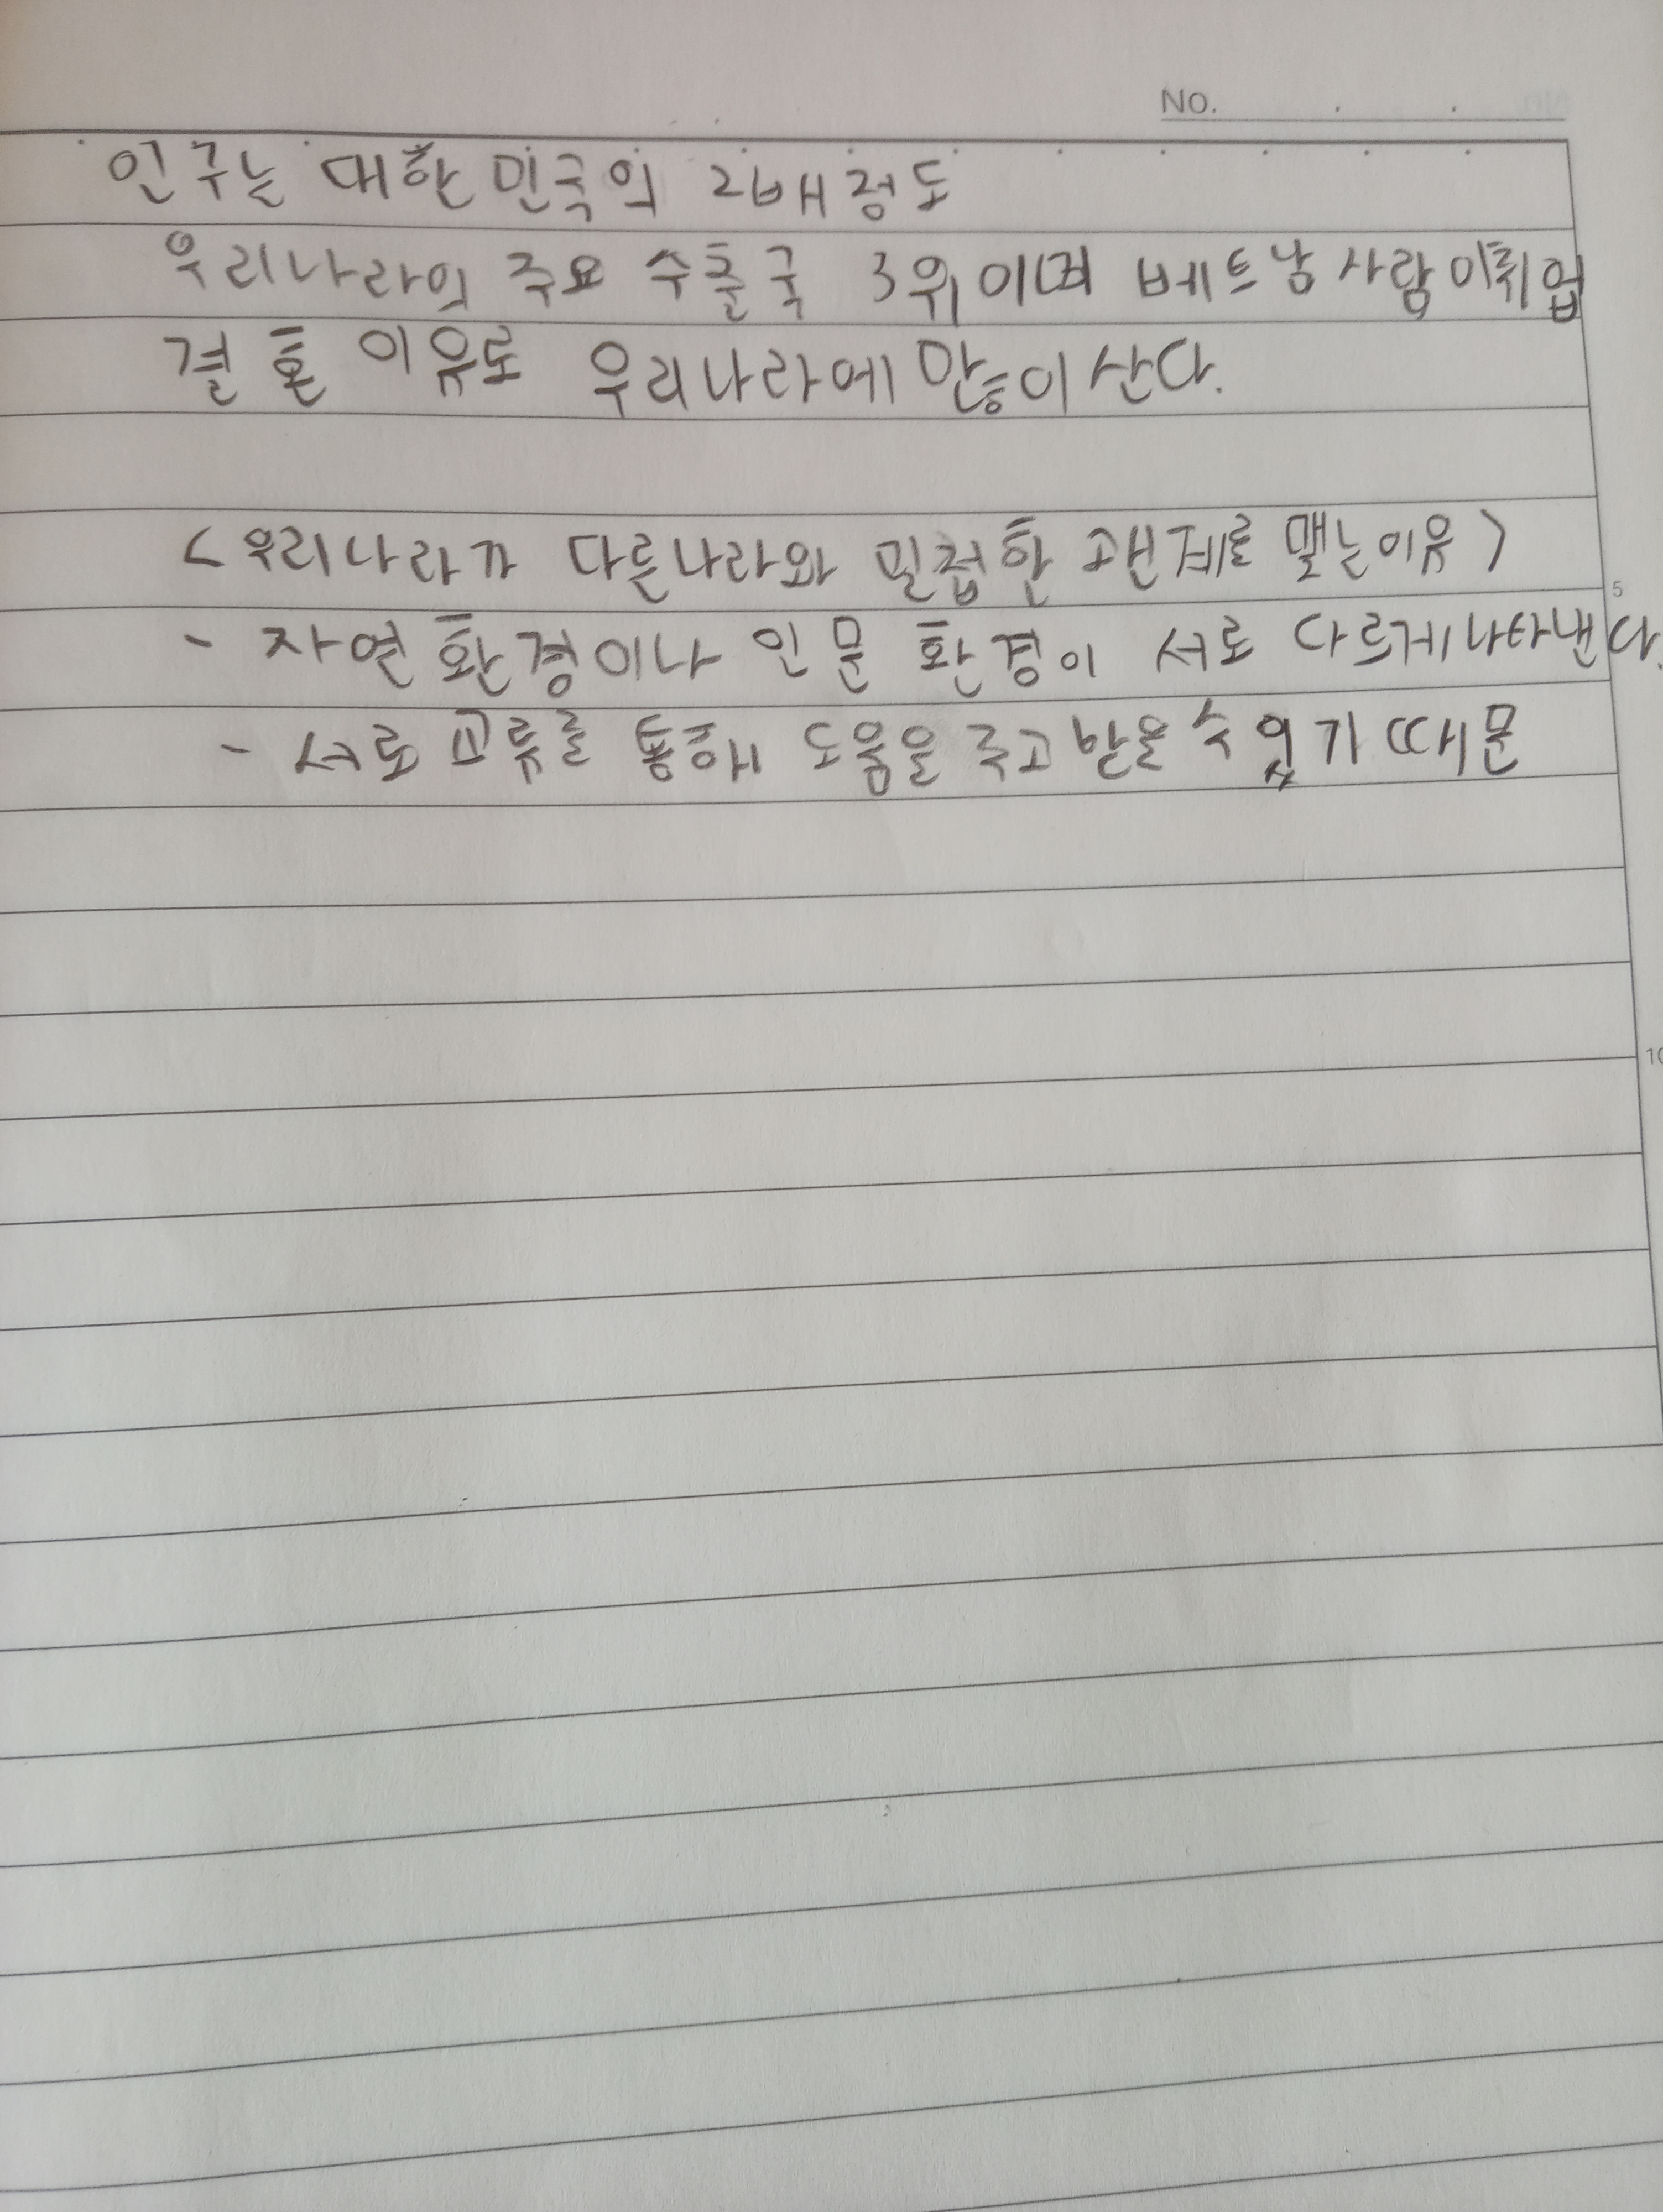 No.
인구는 대한민국의 2배정도
우리나라의 주요 수출국 3위이며 베트남사람이취업
결혼 이유로 우리나라에 많이 산다.
<우리나라가 다른나라와 밀접한 관계를 맺는이유>
5
- 자연환경이나 인문환경이 서로 다르게나타난다.
- 서로 교류를 통해 도움을 주고 받을 수 있기 때문
10